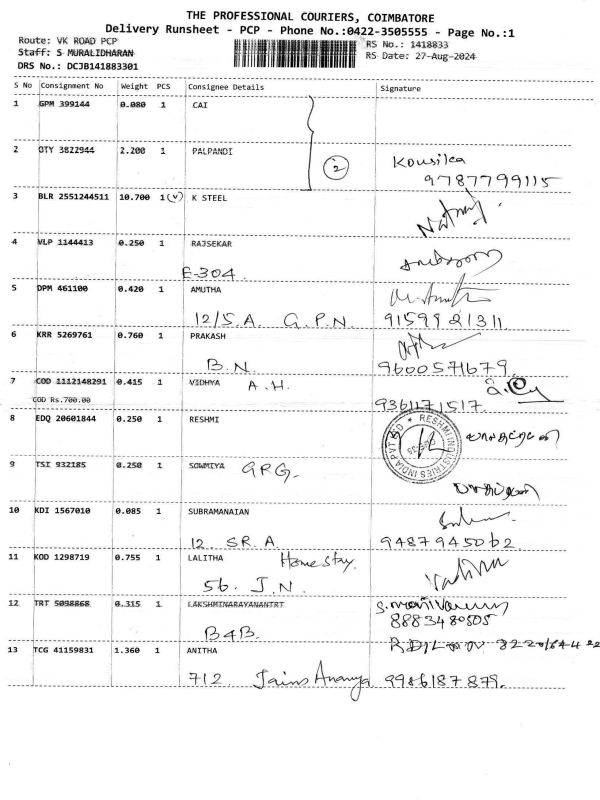 THE PROFESSIONAL COURIERS, COIMBATORE
Delivery Runsheet - PCP - Phone No.:0422-3505555 - Page No.:1
Route: VK ROAD PCP
RS No.: 1418833
Staff: S MURALIDHARAN
RS Date: 27-Aug-2024
DRS No.: DCJB141883301
S No Consignment No Weight PCS Consignee Details Signature
1 GPM 399144 0.080 1 CAI
2 OTY 3822944 2.200 1 PALPANDI 2 Kousika
9787799115
3 BLR 2551244511 10.700 1 K STEEL
4 VLP 1144413 0.250 1 RAJSEKAR
E-304
5 DPM 461100 0.420 1 AMUTHA
12/S.A. G.P.N. 9159921311
6 KRR 5269761 0.760 1 PRAKASH
B.N. 9600571679
7 COD 1112148291 0.415 1 VIDHYA A.H.
COD Rs.700.00 9361171517
8 EDQ 20601844 0.250 1 RESHMI
RESHMI INDUSTRIES INDIA PVT LTD
9 TSI 932185 0.250 1 SOWMIYA GRG.
10 KDI 1567010 0.085 1 SUBRAMANAIAN
12. SR.A 9487945062
11 KOD 1298719 0.755 1 LALITHA Home Stay.
56. J.N.
12 TRT 5098868 0.315 1 LAKSHMINARAYANANTRT
B4B. 8883480505
13 TCG 41159831 1.360 1 ANITHA
712 Jains Ananya 9986187879.